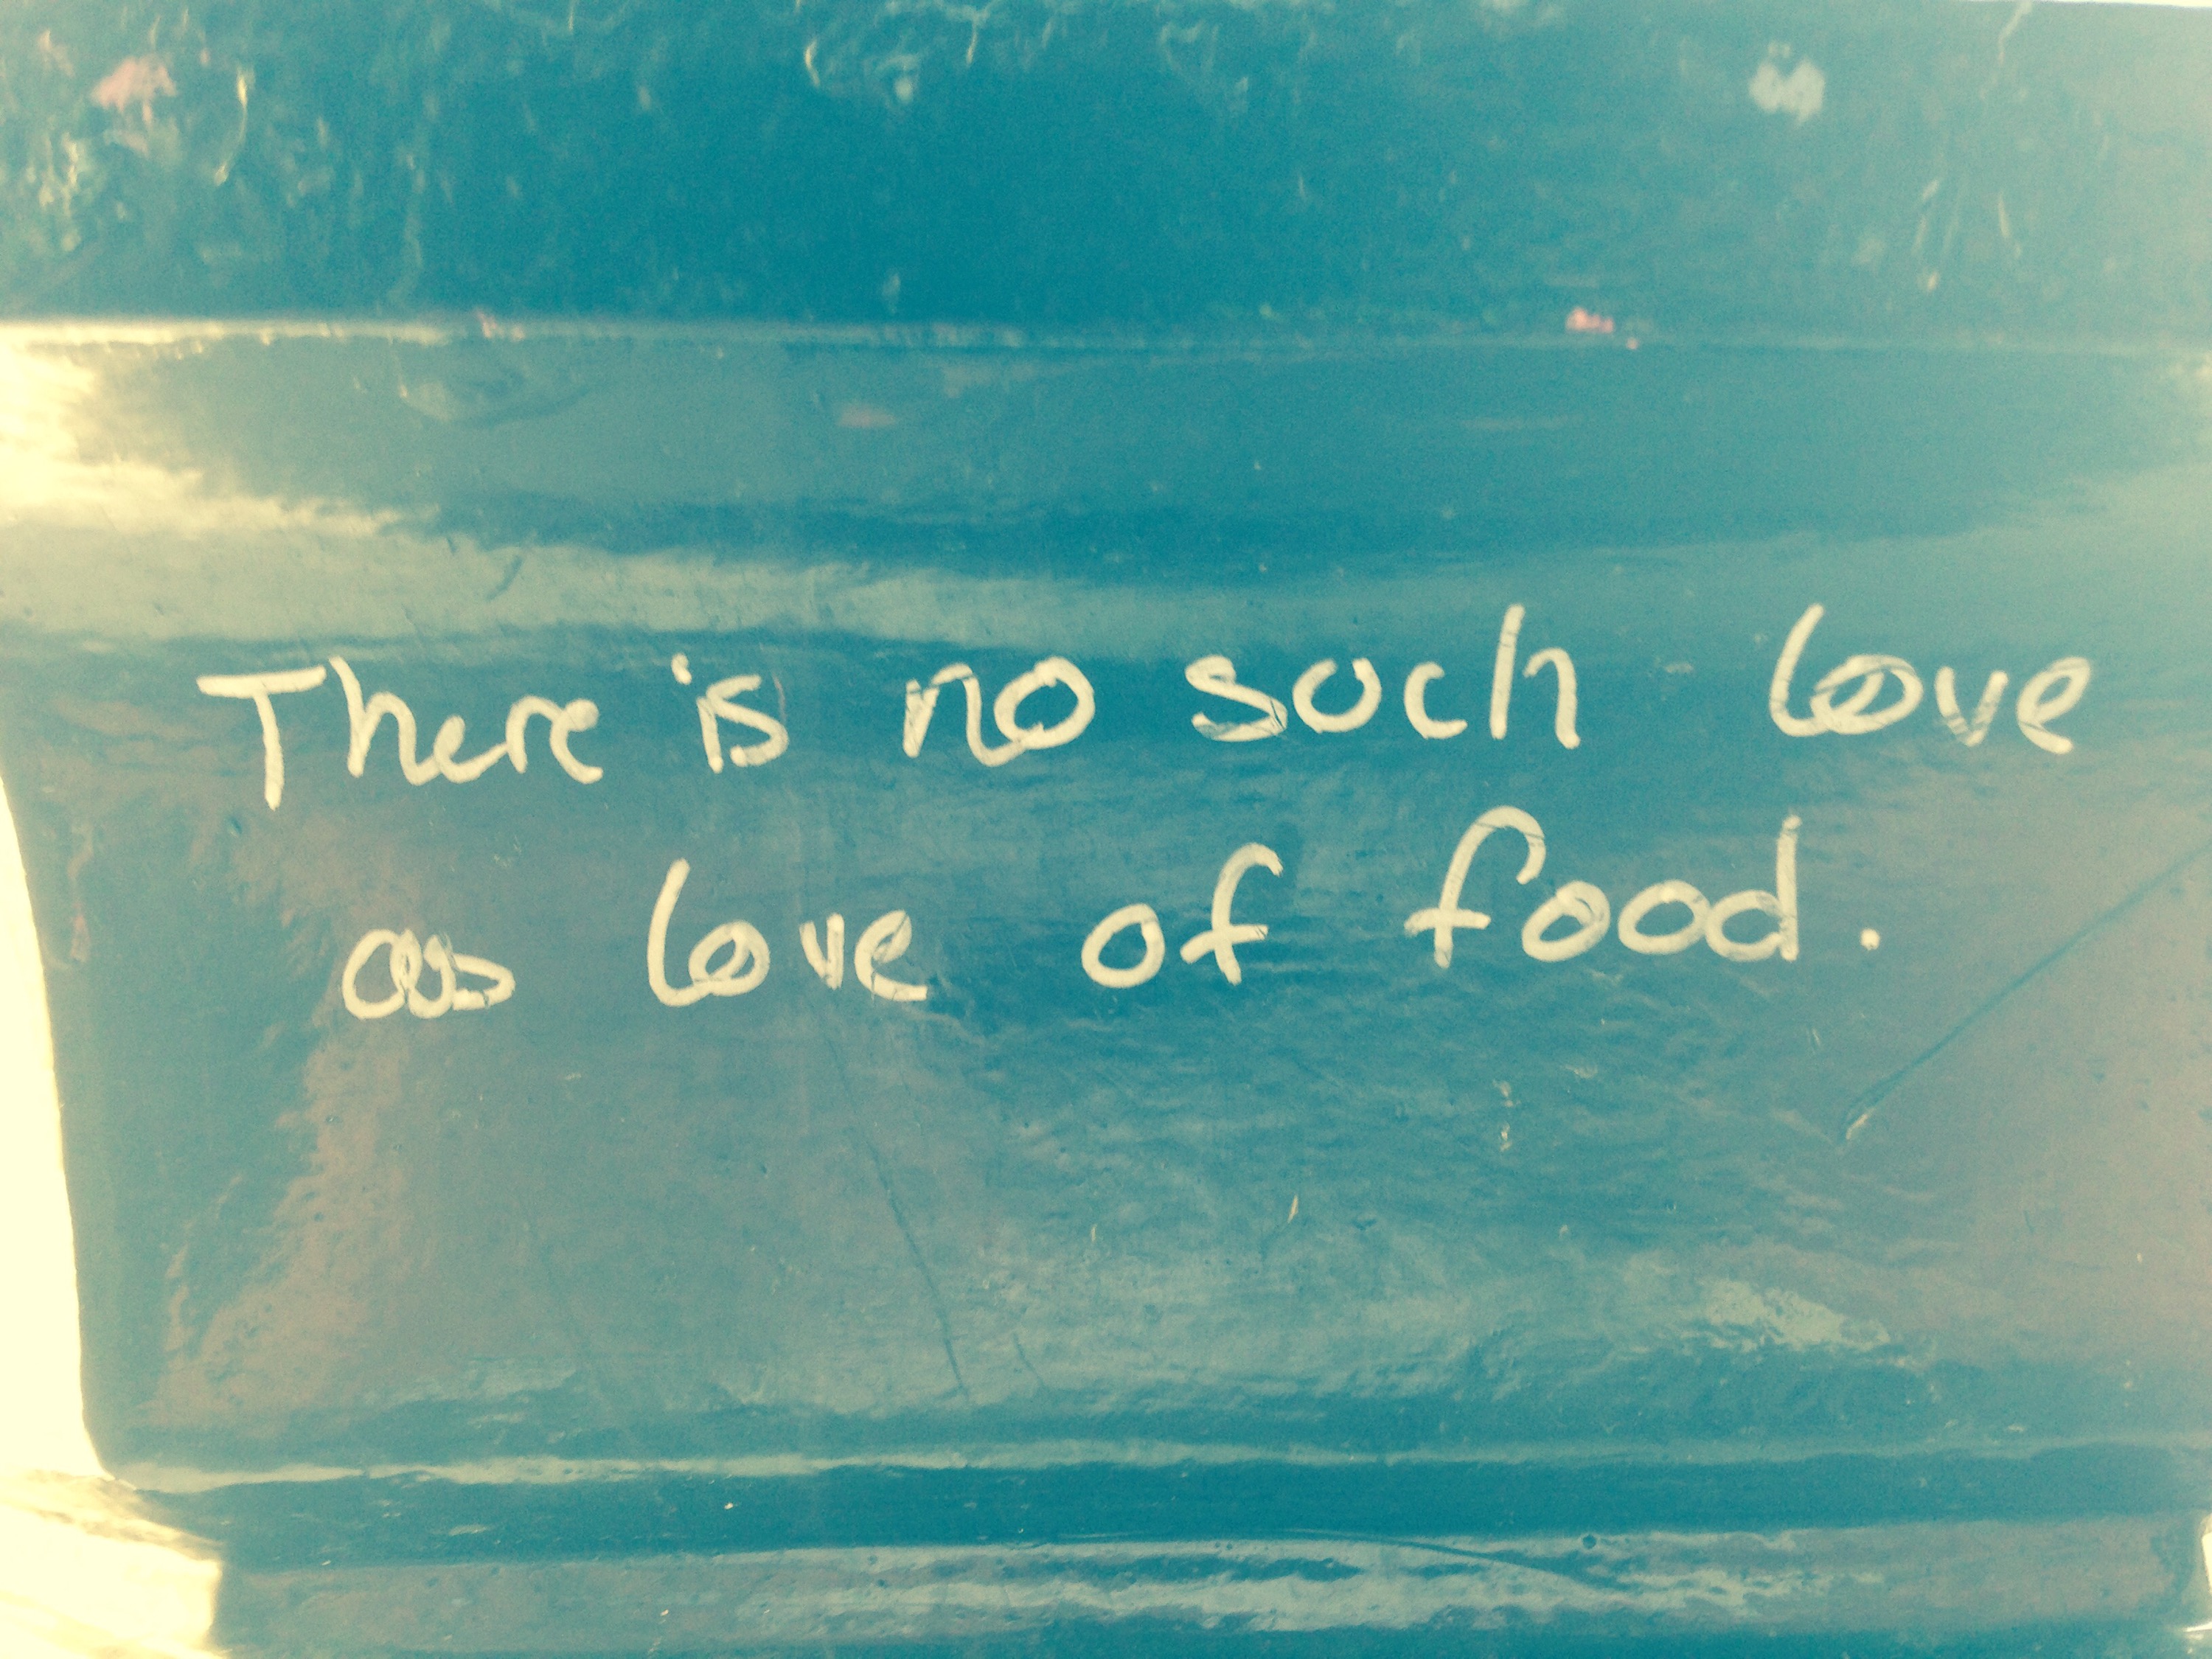 There is no such love
as love of food.